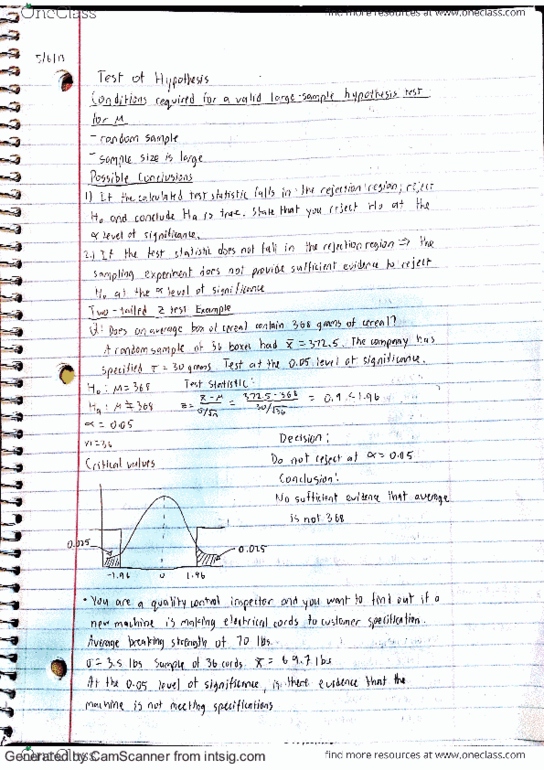 OneClass
find more resources at www.oneclass.com
5/6/13
Test of Hypothesis
Conditions required for a valid large-sample hypothesis test
for μ
- random sample
- sample size is large
Possible Conclusions
1) If the calculated test statistic falls in the rejection region, reject
H₀ and conclude Ha is true. State that you reject H₀ at the
α level of significance.
2.) If the test statistic does not fall in the rejection region → the
sampling experiment does not provide sufficient evidence to reject
H₀ at the α level of significance
Two-tailed Z test Example
Q: Does an average box of cereal contain 368 grams of cereal?
A random sample of 36 boxes had x̄ = 372.5. The company has
specified σ = 30 grams. Test at the 0.05 level of significance.
H₀: μ = 368 Test Statistic:
Ha: μ ≠ 368 z = x̄ - μ / σ/√n = 372.5 - 368 / 30/√36 = 0.9 < 1.96
α = 0.05
n = 36 Decision:
Critical values Do not reject at α = 0.05
Conclusion:
No sufficient evidence that average
is not 368
0.025 0.025
-1.96 0 1.96
• You are a quality control inspector and you want to find out if a
new machine is making electrical cords to customer specification.
Average breaking strength of 70 lbs.
σ = 3.5 lbs Sample of 36 cords. x̄ = 69.7 lbs
At the 0.05 level of significance, is there evidence that the
machine is not meeting specifications
OneClass
Generated by CamScanner from intsig.com
find more resources at www.oneclass.com